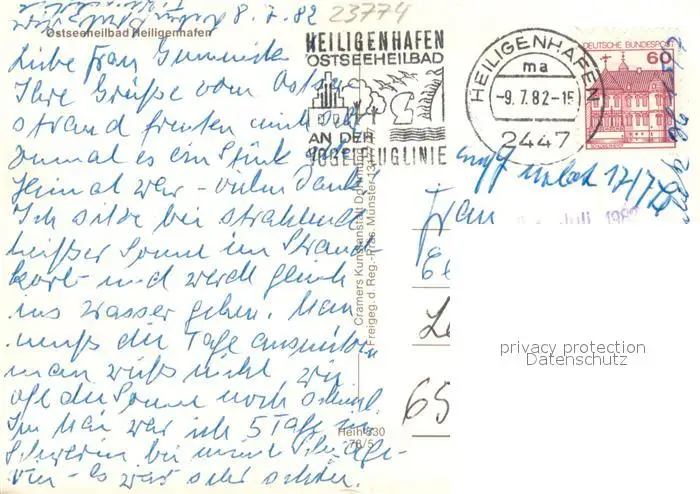 8.7.82
23774
Ostseeheilbad Heiligenhafen
Liebe Frau
Ihre Grüße vom Ostsee
strand freuten mich sehr
zumal es ein Stück
Heimat war - vielen Dank!
Ich sitze bei strahlend
heißer Sonne im Strand
korb und werde gleich
ins Wasser gehen. Man
muß die Tage ausnützen
man weiß nicht, wie
oft die Sonne noch scheint.
Im Mai war ich 5 Tage in
Schwerin bei meiner
- es war sehr schön.
HEILIGENHAFEN
OSTSEEHEILBAD
AN DER
VOGELFLUGLINIE
HEILIGENHAFEN
ma
-9.7.82-15
2447
DEUTSCHE BUNDESPOST
60
17/7
Juli 1982
Frau
65
Cramers Kunstanstalt Dortmund
Freigeg. d. Reg.-Präs. Münster
Heih 330
78/5
privacy protection
Datenschutz